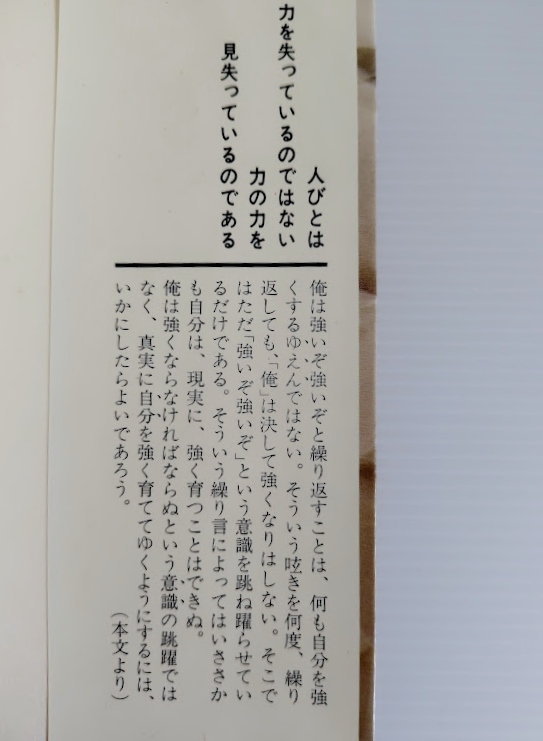 人びとは
力を失っているのではない
力の力を
見失っているのである
俺は強いぞ強いぞと繰り返すことは、何も自分を強
くするゆえんではない。そういう呟きを何度、繰り
返しても、「俺」は決して強くなりはしない。そこで
はただ「強いぞ強いぞ」という意識を跳ね躍らせてい
るだけである。そういう繰り言によってはいささか
も自分は、現実に、強く育つことはできぬ。
俺は強くならなければならぬという意識の跳躍では
なく、真実に自分を強く育ててゆくようにするには、
いかにしたらよいであろう。
（本文より）